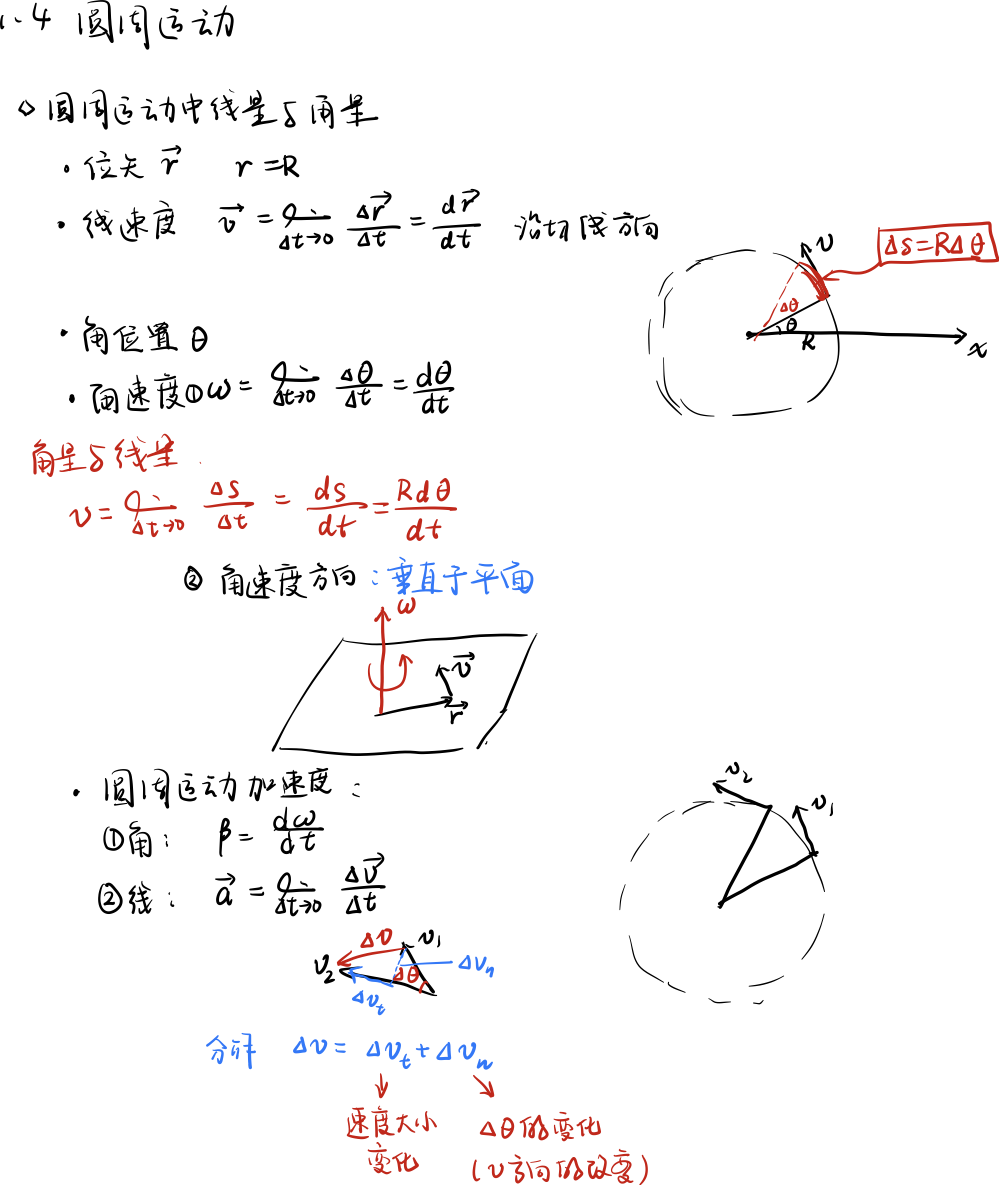 1.4 圆周运动
◇ 圆周运动中线量与角量
· 位矢 r⃗ r=R
· 线速度 v⃗ = lim Δt→0 Δr⃗/Δt = dr⃗/dt 沿切线方向
v
Δs=RΔθ
Δθ
θ
R
x
· 角位置 θ
· 角速度 ① ω = lim Δt→0 Δθ/Δt = dθ/dt
角量与线量
v = lim Δt→0 Δs/Δt = ds/dt = Rdθ/dt
② 角速度方向：垂直于平面
ω
v⃗
r⃗
· 圆周运动加速度：
① 角： β = dω/dt
② 线： a⃗ = lim Δt→0 Δv⃗/Δt
v₂
v₁
Δv
v₁
v₂
Δθ
Δvₙ
Δvₜ
分解 Δv = Δvₜ + Δvₙ
速度大小
变化
Δθ的变化
(v方向的改变)